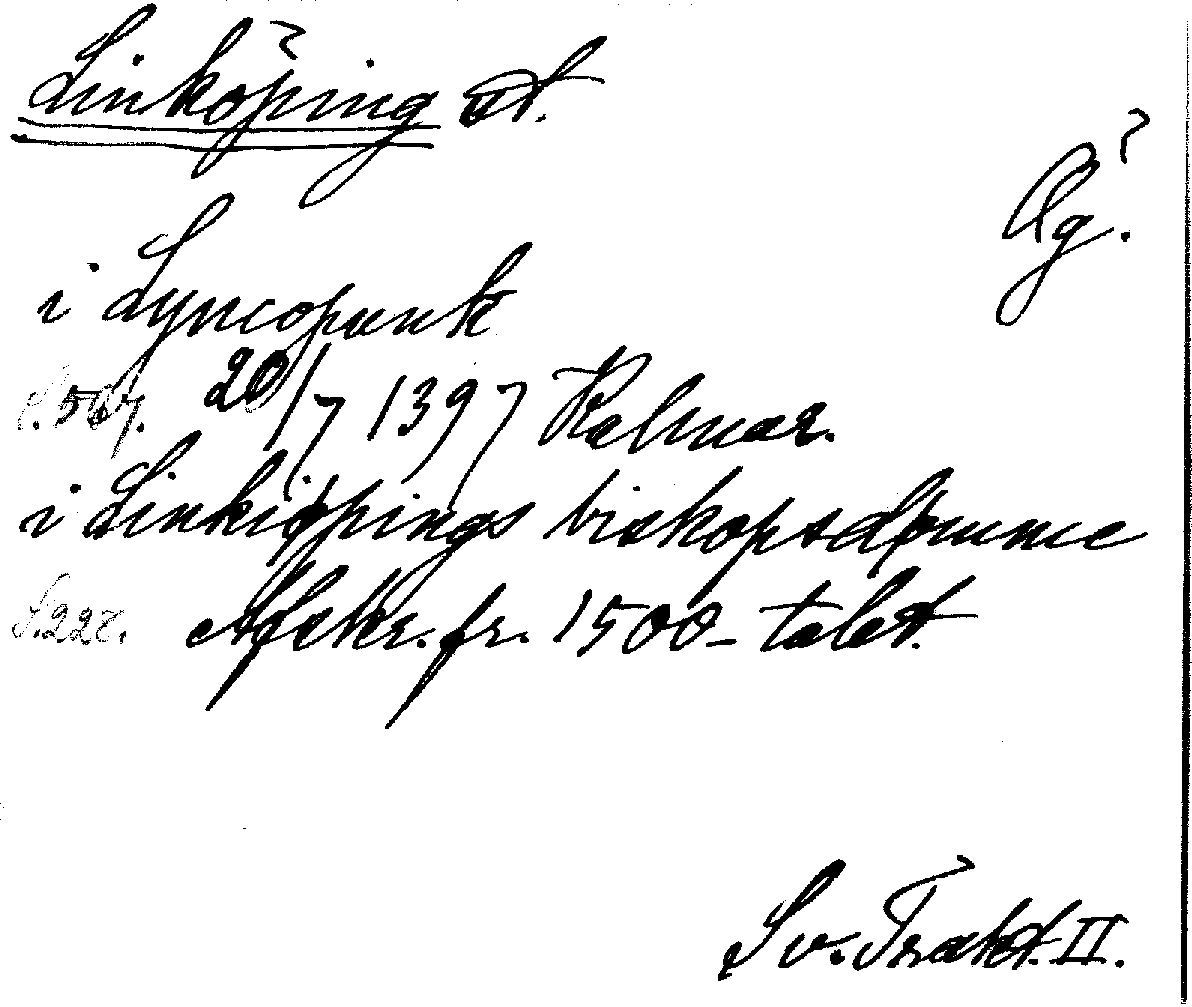 Linköping st.
Ög.
i Lyncopunk
S. 567. 20/7 1397 Kalmar.
i Linkiøpings biskopsdømme
S. 228. Afskr. fr. 1500-talet.
Sv. Trakt. II.